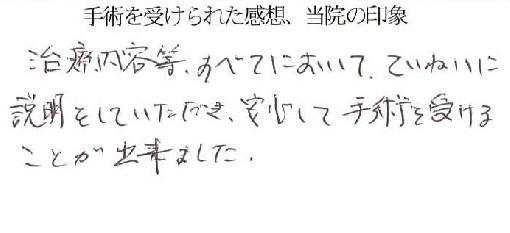 手術を受けられた感想、当院の印象
治療内容等、すべてにおいて、ていねいに
説明をしていただき、安心して手術を受ける
ことが出来ました.